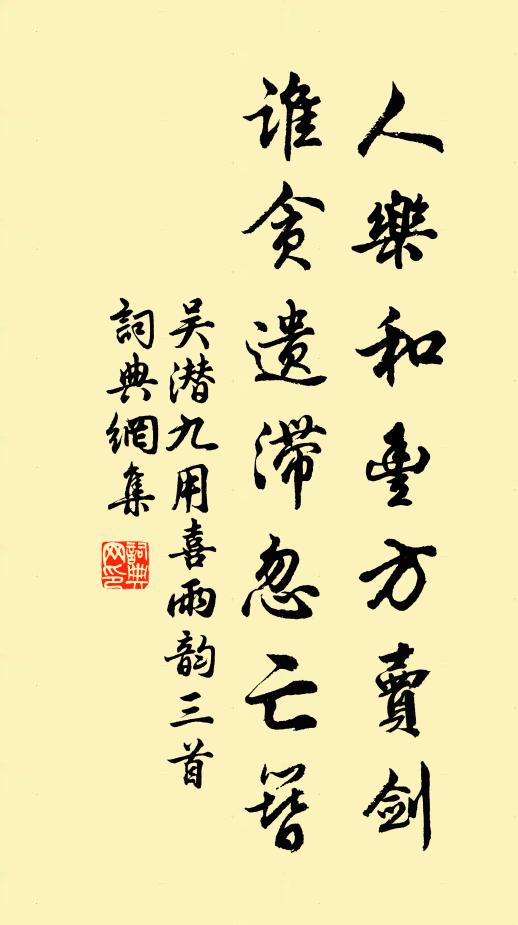 人樂和豊方賣劍
誰貪遺滯忽亡簪
吴潜九用喜雨韵三首
詞典網集
詞典网印